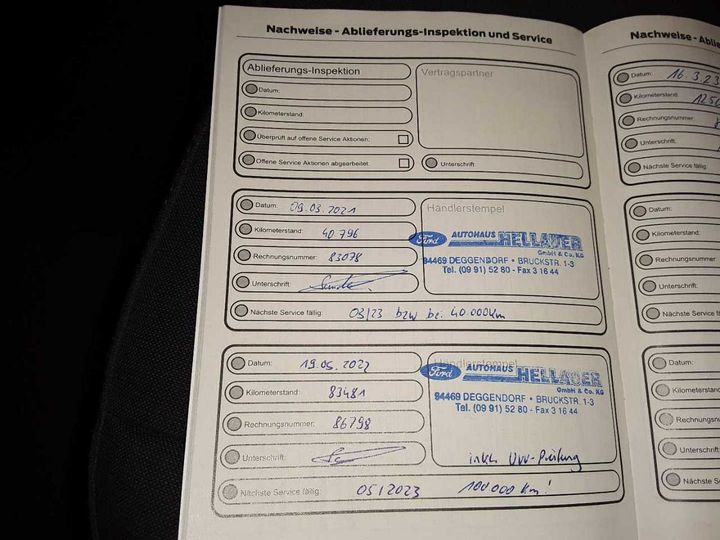 Nachweise - Ablieferungs-Inspektion und Service
Ablieferungs-Inspektion
Datum:
Kilometerstand:
Überprüft auf offene Service Aktionen:
Offene Service Aktionen abgearbeitet:
Vertragspartner
Unterschrift
Datum: 09.03.2021
Kilometerstand: 40 796
Rechnungsnummer: 83078
Unterschrift:
Nächste Service fällig: 03/23 bzw bei 40 000 Km
Händlerstempel
Ford AUTOHAUS HELLAUER
GmbH & Co. KG
94469 DEGGENDORF • BRUCKSTR. 1-3
Tel. (09 91) 52 80 - Fax 3 16 44
Datum: 19.05.2022
Kilometerstand: 83481
Rechnungsnummer: 86798
Unterschrift:
Nächste Service fällig: 05/2023 100 000 Km!
Händlerstempel
Ford AUTOHAUS HELLAUER
GmbH & Co. KG
94469 DEGGENDORF • BRUCKSTR. 1-3
Tel. (09 91) 52 80 - Fax 3 16 44
inkl. UVV-Prüfung
Nachweise - Ablie
Datum: 16.3.23
Kilometerstand: 125
Rechnungsnummer:
Unterschrift:
Nächste Service fällig:
Datum:
Kilometerstand:
Rechnungsnummer
Unterschrift:
Nächste Service fällig
Datum:
Kilometerstand
Rechnungsnumm
Unterschrift:
Nächste Service